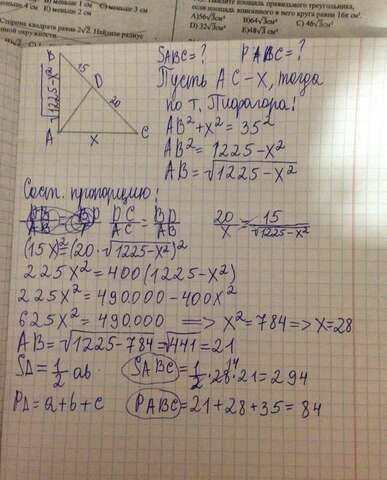 меньше 4 см  E) меньше 2 см
Сторона квадрата равна 2√2. Найдите радиус
площадь правильного треугольника,
если площадь вписанного в него круга равна 16π см².
A)56√3см²  B)64√3см²  C) 46√3см²
D) 32√3см²  E)48√3 см²
B
15
D
20
√1225-x²
A
X
C
SABC=?  PABC=?
Пусть AC-X, тогда
по т. Пифагора:
AB²+X²=35²
AB²=1225-X²
AB=√1225-X²
Сост. пропорцию:
DC/AC=BD/AB  20/X=15/√1225-X²
(15X)²=(20·√1225-X²)²
225X²=400(1225-X²)
225X²=490000-400X²
625X²=490.000 => X²=784=>X=28
AB=√1225-784=√441=21
SΔ=1/2 ab.  SABC=1/2·28·21=294
14
PΔ=a+b+c  PABC=21+28+35=84